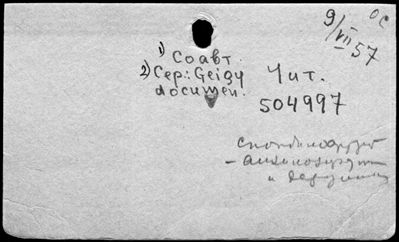 9/VII 57
ОС
1) Соавт.
2) Сер.: Geigy
documen.
Чит.
504997